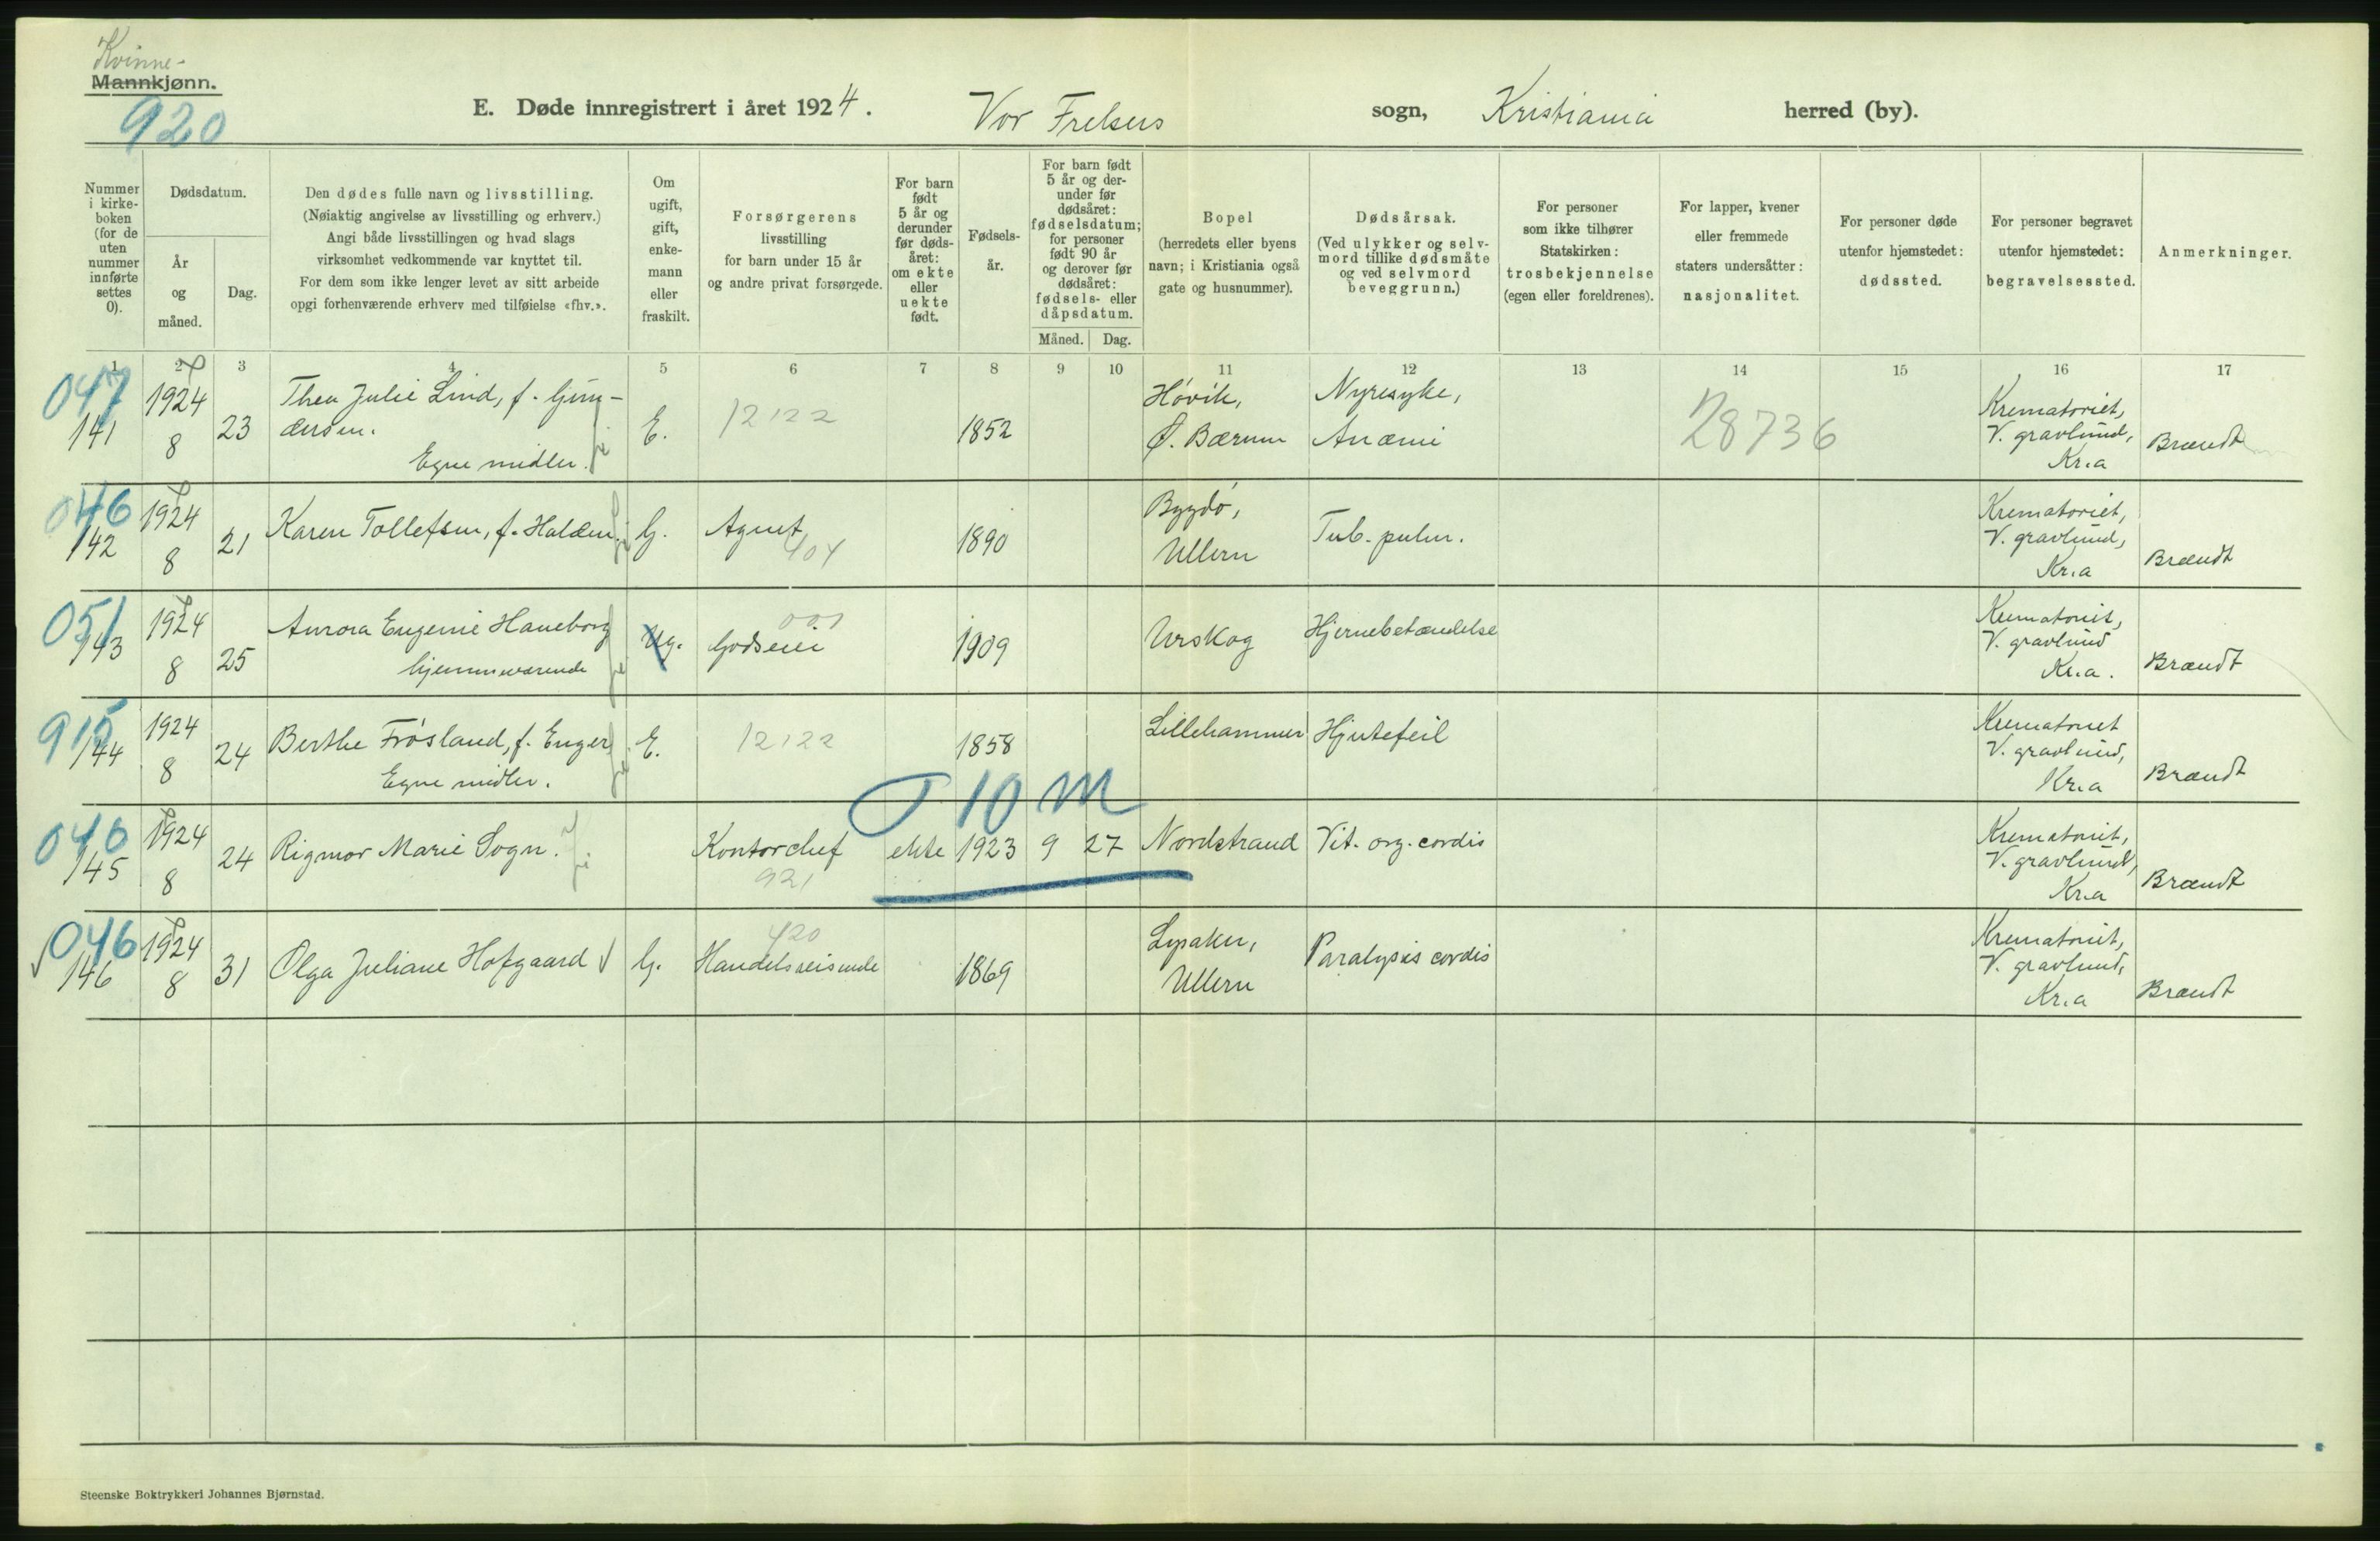 Kvinne-
Mannkjønn.
920
E. Døde innregistrert i året 1924. Vor Frelsers sogn, Kristiania herred (by).
Nummer i kirke-boken (for de uten nummer innførte settes 0).
Dødsdatum.
År og måned.
Dag.
Den dødes fulle navn og livsstilling.
(Nøiaktig angivelse av livsstilling og erhverv.)
Angi både livsstillingen og hvad slags
virksomhet vedkommende var knyttet til.
For dem som ikke lenger levet av sitt arbeide
opgi forhenværende erhverv med tilføielse «fhv.».
Om ugift, gift, enke-mann eller fraskilt.
Forsørgerens livsstilling for barn under 15 år og andre privat forsørgede.
For barn født 5 år og derunder før døds-året: om ekte eller uekte født.
Fødsels-år.
For barn født 5 år og der-under før dødsåret: fødselsdatum; for personer født 90 år og derover før dødsåret: fødsels- eller dåpsdatum.
Måned. Dag.
Bopel (herredets eller byens navn; i Kristiania også gate og husnummer).
Dødsårsak. (Ved ulykker og selv-mord tillike dødsmåte og ved selvmord beveggrunn.)
For personer som ikke tilhører Statskirken: trosbekjennelse (egen eller foreldrenes).
For lapper, kvener eller fremmede staters undersåtter: nasjonalitet.
For personer døde utenfor hjemstedet: dødssted.
For personer begravet utenfor hjemstedet: begravelsessted.
Anmerkninger.
1 2 3 4 5 6 7 8 9 10 11 12 13 14 15 16 17
047 141 1924 8 23 Thea Julie Lind, f. Gun-
dersen.
Egne midler. E. 12122 1852 Høvik,
Ø. Bærum Nyresyke,
Anæmi 28736 Krematoriet,
V. gravlund,
Kr.a Brændt
046 142 1924 8 21 Karen Tollefsen, f. Halden. G. Agent 404 1890 Bygdø,
Ullern Tub. pulm. Krematoriet,
V. gravlund,
Kr.a Brændt
051 143 1924 8 25 Aurora Eugenie Haneborg
hjemmeværende Ug. Godseier 001 1909 Urskog Hjernebetændelse Krematoriet,
V. gravlund
Kr.a. Brændt
915 144 1924 8 24 Berthe Frøsland, f. Enger
Egne midler. E. 12122 1858 Lillehammer Hjertefeil Krematoriet
V. gravlund,
Kr.a Brændt
T 10 M
040 145 1924 8 24 Rigmor Marie Sogn. Kontorchef 921 ekte 1923 9 27 Nordstrand Vit. org. cordis Krematoriet,
V. gravlund,
Kr.a Brændt
046 146 1924 8 31 Olga Juliane Hofgaard G. Handelsreisende 420 1869 Lysaker,
Ullern Paralysis cordis Krematoriet,
V. gravlund,
Kr.a Brændt
Steenske Boktrykkeri Johannes Bjørnstad.